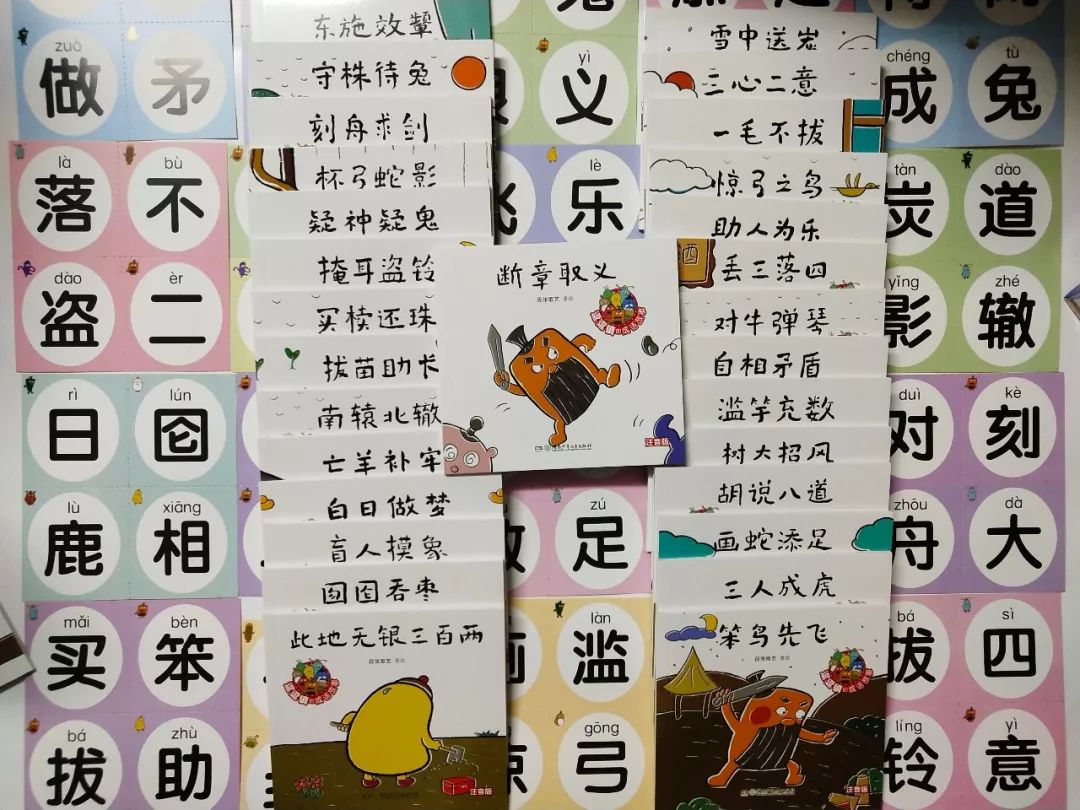 zuò
做 矛
là bù
落 不
dào èr
盗 二
rì lún
日 囵
lù xiāng
鹿 相
mǎi bèn
买 笨
bá zhù
拔 助
东施效颦
守株待兔
刻舟求剑
杯弓蛇影
疑神疑鬼
掩耳盗铃
买椟还珠
拔苗助长
南辕北辙
亡羊补牢
白日做梦
盲人摸象
囫囵吞枣
此地无银三百两
段张取艺 著绘
注音版
yì
义
lè
飞 乐
断章取义
段张取艺 著绘
注音版
zú
足
làn
滥
gōng
惊 弓
雪中送炭
三心二意
一毛不拔
惊弓之鸟
助人为乐
丢三落四
酒
对牛弹琴
自相矛盾
滥竽充数
树大招风
胡说八道
画蛇添足
三人成虎
笨鸟先飞
段张取艺 著绘
注音版
chéng tù
成 兔
tàn dào
炭 道
yǐng zhé
影 辙
duì kè
对 刻
zhōu dà
舟 大
bá sì
拔 四
líng yì
铃 意